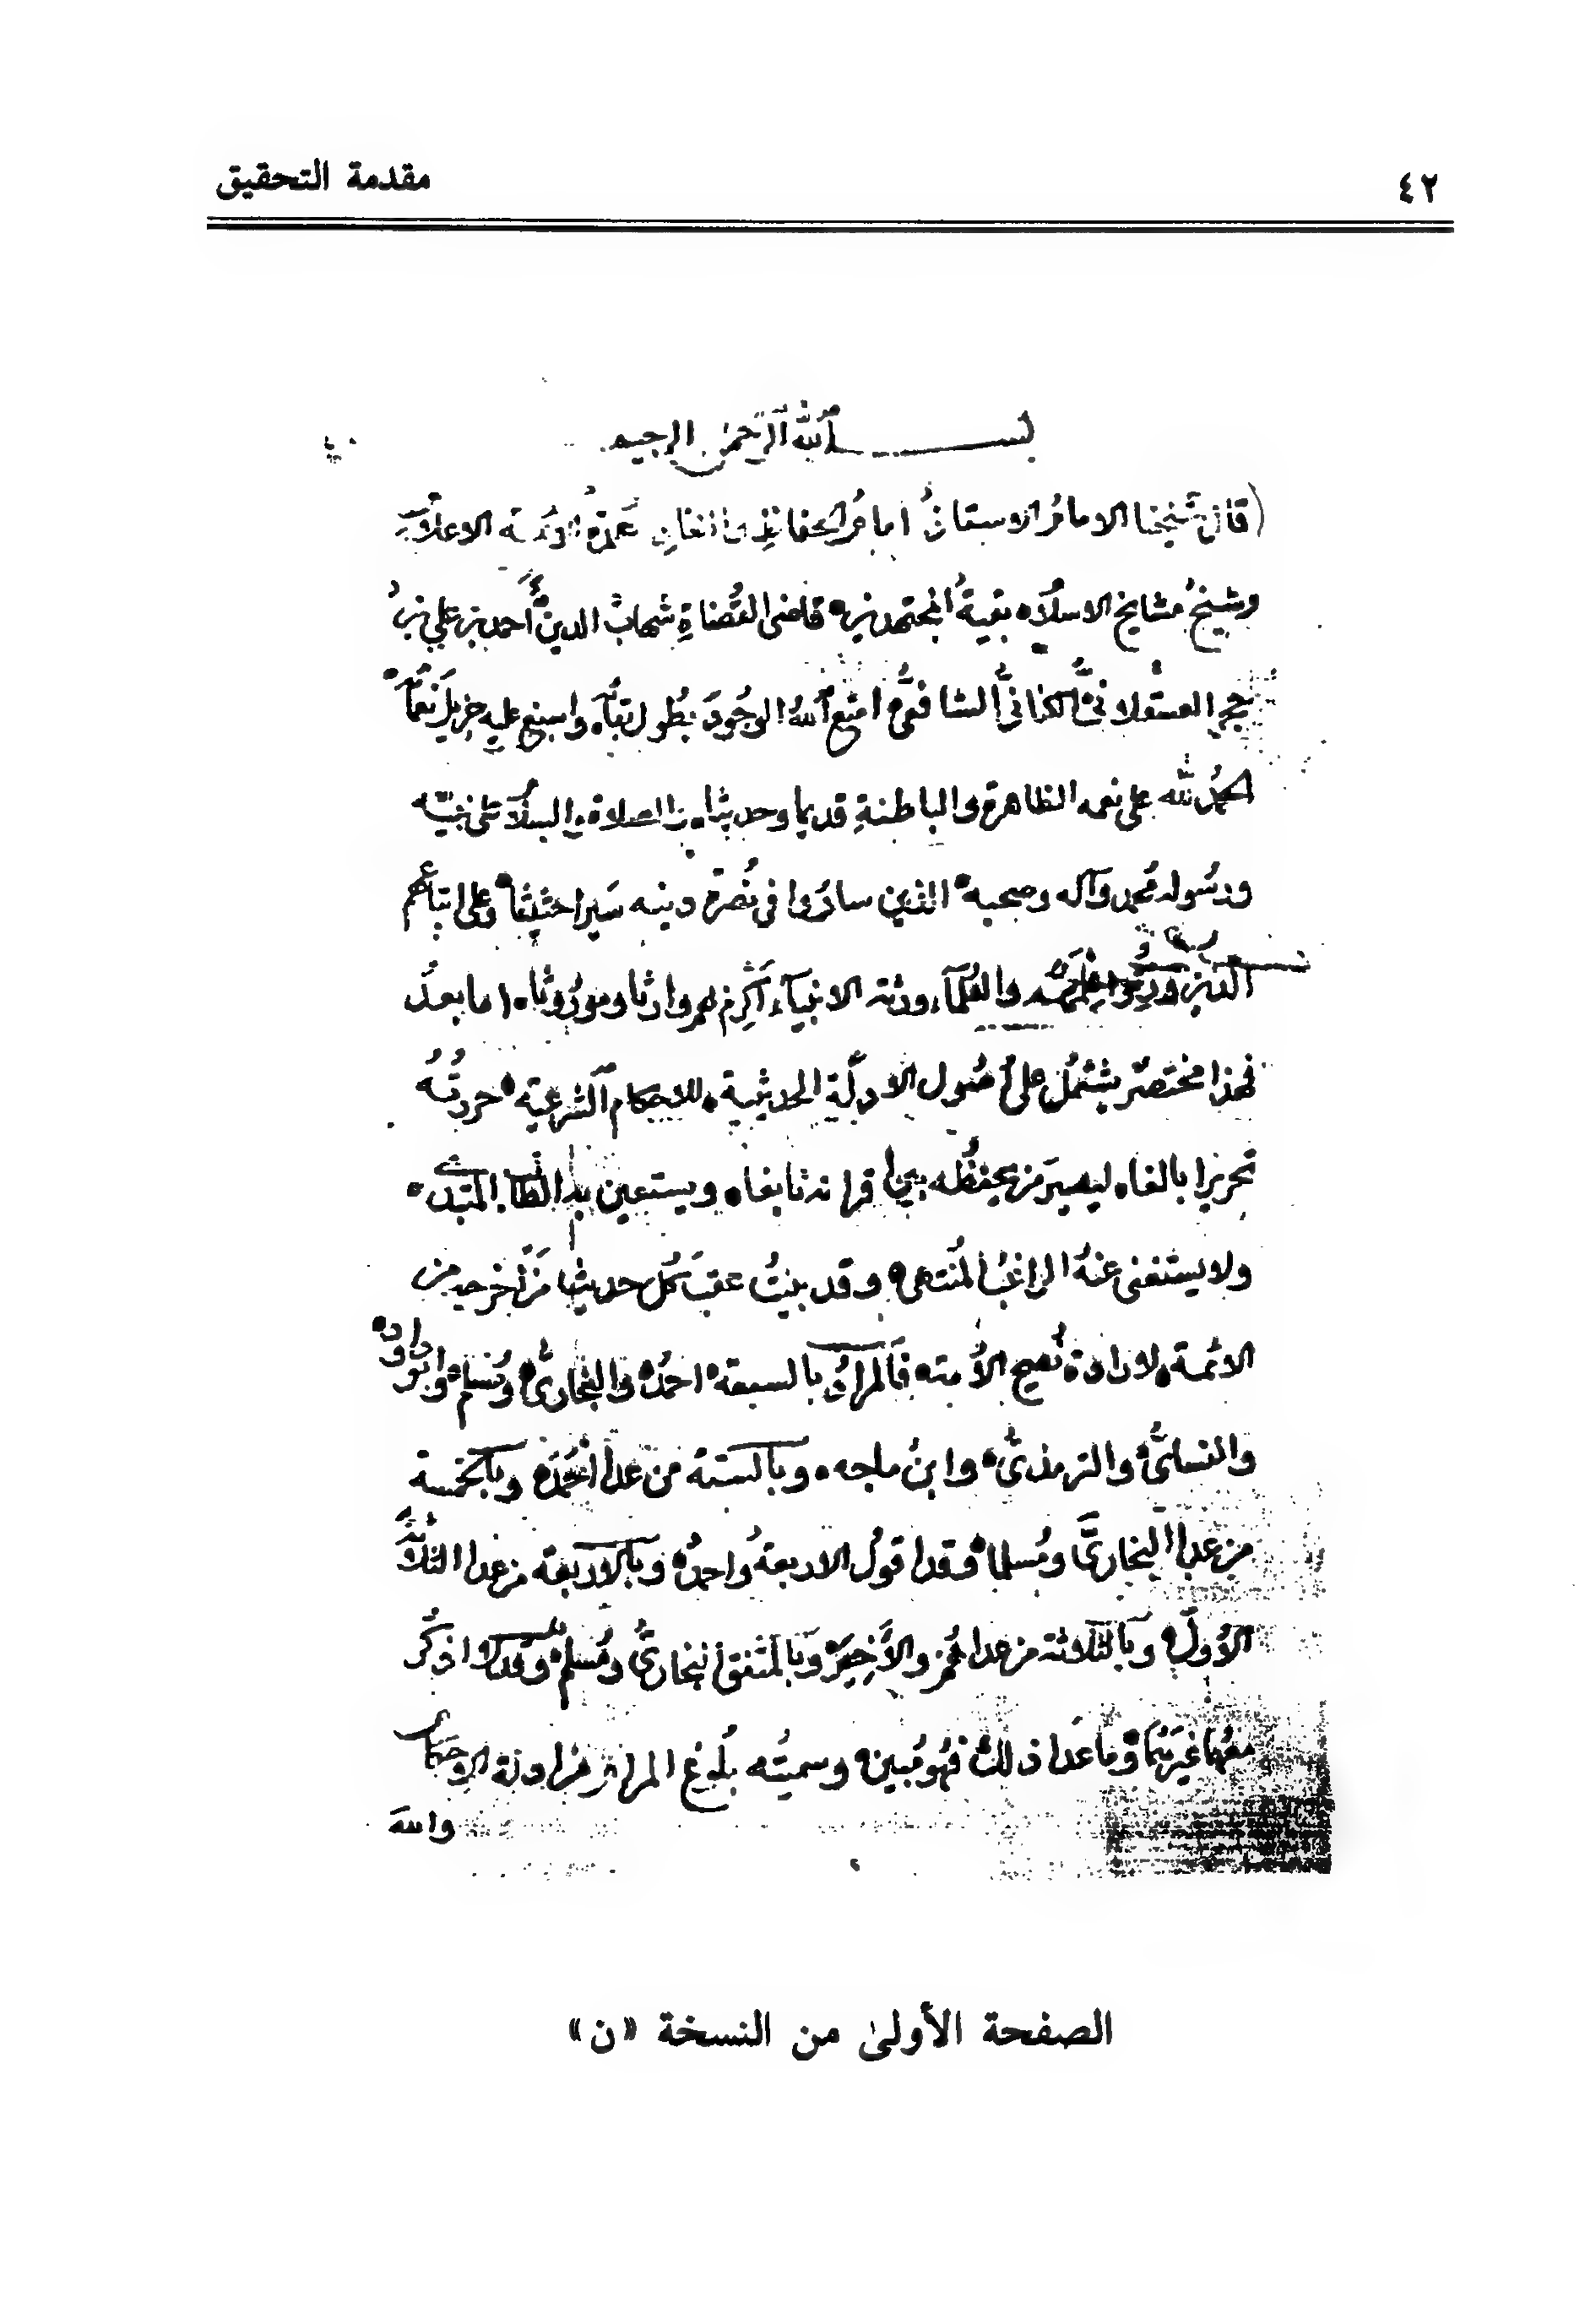 ٤٢
مقدمة التحقيق
بسم الله الرحمن الرحيم
قال شيخنا الامام الاستاذ امام الحفاظ والنقاد عمدة الاعلام
وشيخ مشايخ الاسلام بقية المجتهدين قاضي القضاة شهاب الدين أحمد بن علي بن
حجر العسقلاني الكناني الشافعي امتع الله الوجود بطول بقاه واسبغ عليه جزيل نعماه
الحمد لله على نعمه الظاهرة والباطنة قديما وحديثا والصلاة والسلام على نبيه
ورسوله محمد وآله وصحبه الذين ساروا في نصرة دينه سيرا حثيثا وعلى اتباعهم
الذين ورثوا علمهم والعلماء ورثة الانبياء أكرم بهم وارثا وموروثا اما بعد
فهذا مختصر يشتمل على أصول الادلة الحديثية للاحكام الشرعية حررته
تحريرا بالغا ليصير من يحفظه بين اقرانه نابغا ويستعين به الطالب المبتدى
ولا يستغنى عنه الراغب المنتهى وقد بينت عقب كل حديث من أخرجه من
الائمة لارادة نصح الأمة فالمراد بالسبعة احمد والبخارى ومسلم وابو داود
والنسائى والترمذى وابن ماجه وبالستة من عدا أحمد وبالخمسة
من عدا البخارى ومسلما وقد اقول الاربعة واحمد وبالاربعة من عدا الثلاثة
الأول وبالثلاثة من عداهم والأخير وبالمتفق البخارى ومسلم وقد لا اذكر
معهما غيرهما وما عدا ذلك فهو مبين وسميته بلوغ المرام من ادلة الاحكام
والله
الصفحة الأولى من النسخة «ن»